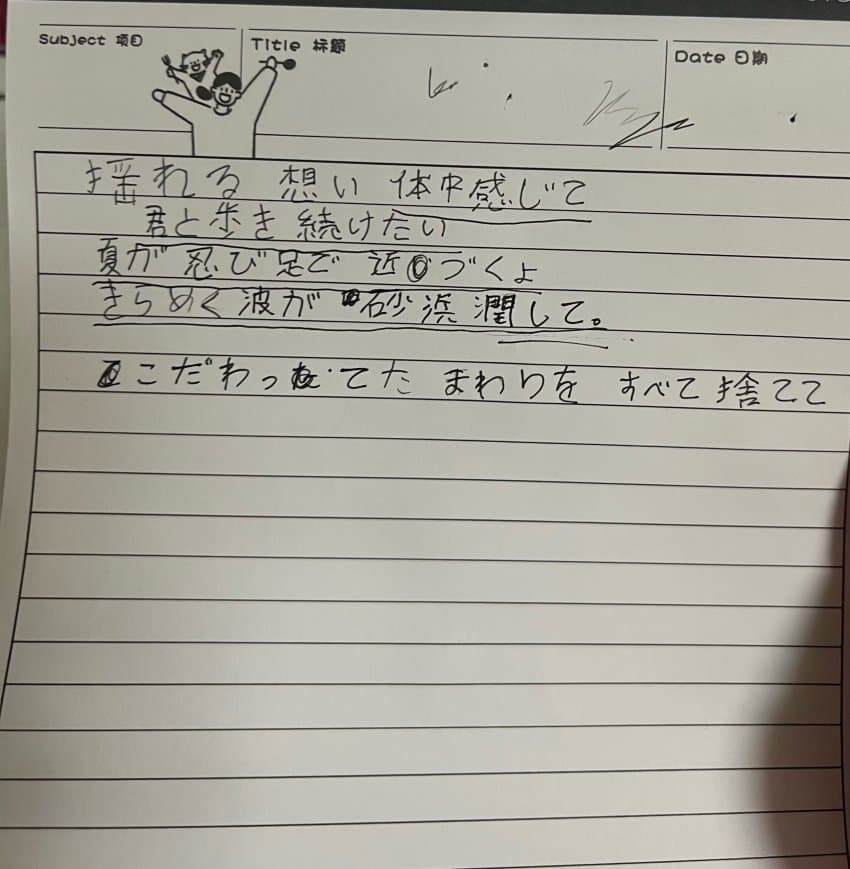 Subject 项目 Title 标题 Date 日期
揺れる 想い 体中感じて
君と歩き続けたい
夏が 忍び足で 近づくよ
きらめく波が 砂浜 潤して。
こだわってた まわりを すべて捨てて